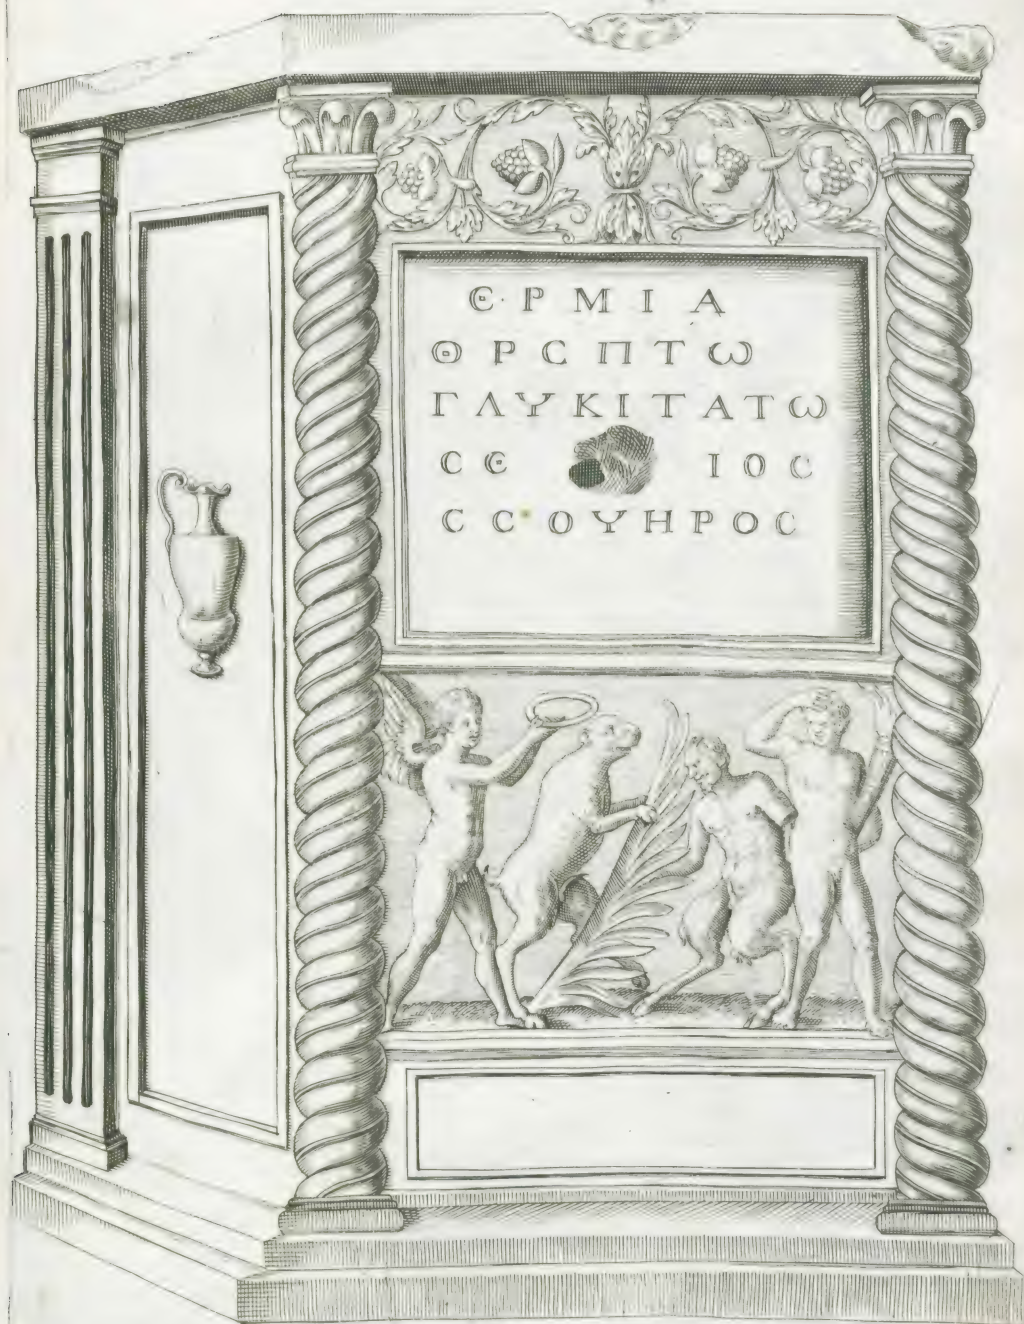 Є·ΡΜΙΑ
ΘΡCΠΤω
ΓΛΥΚΙΤΑΤω
CЄ ΙΟC
CCΟΥΗΡΟC